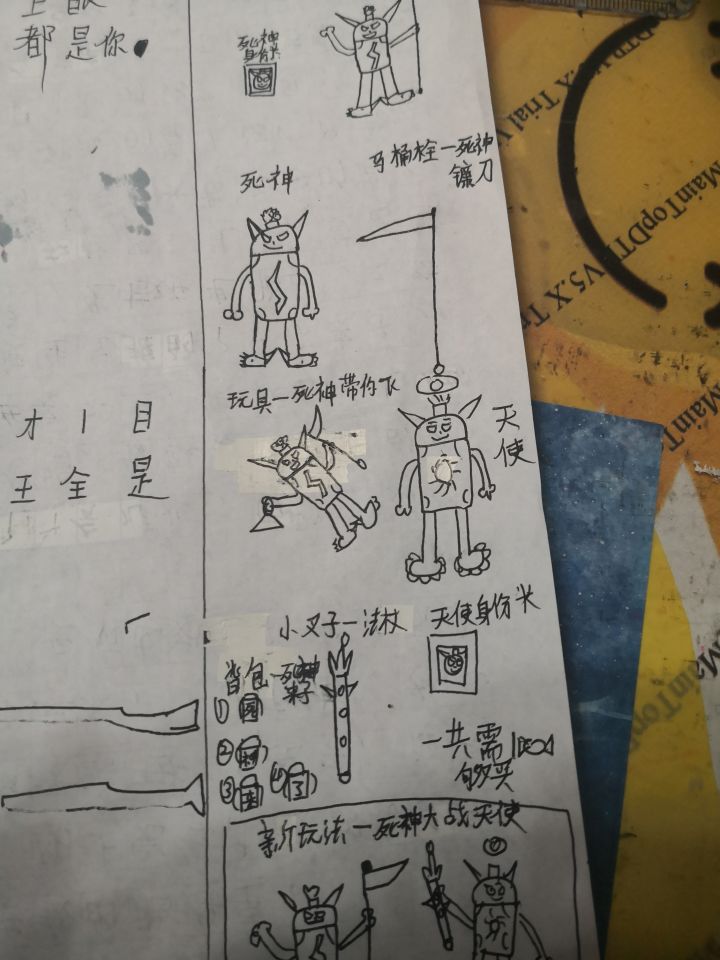 都是你。
死神
马桶栓一死神
镰刀
死神
玩具一死神带你飞
天
使
才 1 目
王 全 是
小叉子一法杖
天使身份米
背包一死神
①
②
③
④
一共需
够买
新玩法一死神大战天使
MainTopDTP V5.X Trial V
MainTopDTP V5.X Tr
MainTo
MainTop